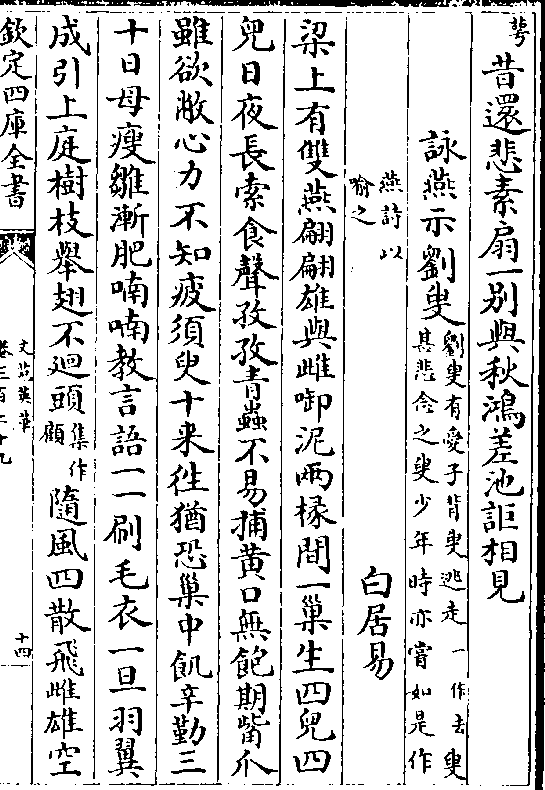 萼昔還悲素扇一别與秋鴻差池詎相見
詠燕示劉叟劉叟有愛子背叟逃走一作去叟
甚悲念之叟少年時亦嘗如是作
燕詩以
喻之
白居易
梁上有雙燕翩翩雄與雌啣泥兩椽間一巢生四兒四
兒日夜長索食聲孜孜青蟲不易捕黄口無飽期觜爪
雖欲敝心力不知疲須臾十来徃猶恐巢中飢辛勤三
十日母瘦雛漸肥喃喃教言語一一刷毛衣一旦羽翼
成引上庭樹枝舉翅不廻頭集作
顧隨風四散飛雌雄空
欽定四庫全書
文苑英華
卷三百二十九
十四